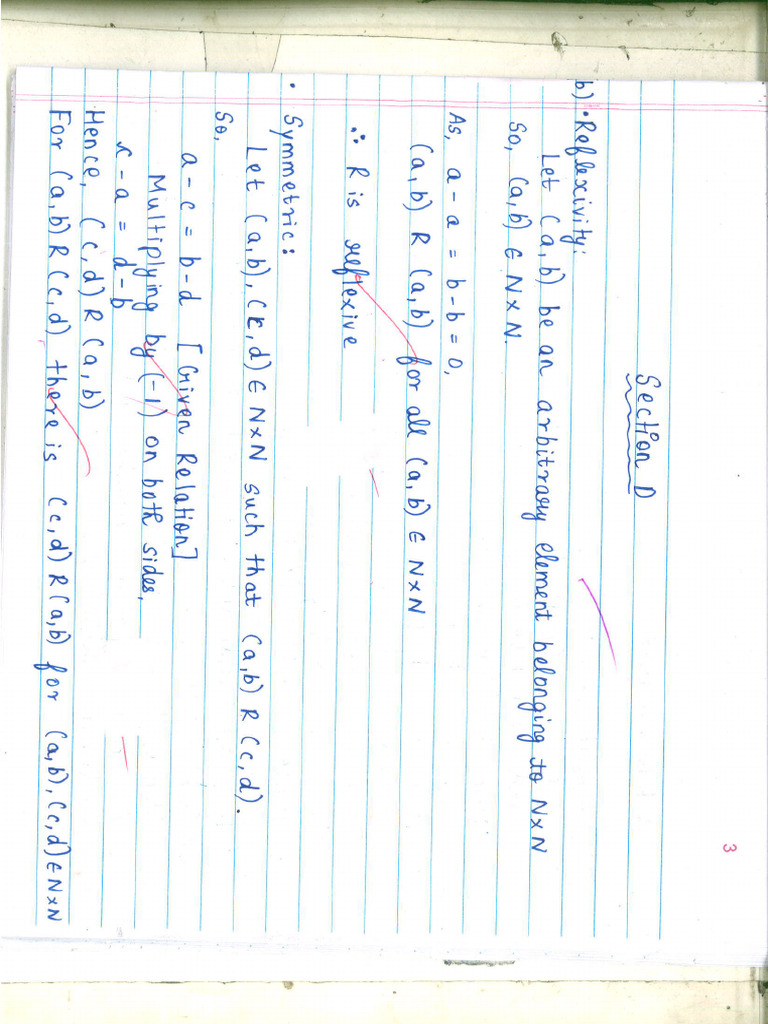 3
Section D
b) • Reflexivity:
Let (a,b) be an arbitrary element belonging to N×N
So, (a,b) ∈ N×N.
As, a - a = b - b = 0,
(a,b) R (a,b) for all (a,b) ∈ N×N
∴ R is reflexive
• Symmetric:
Let (a,b), (c,d) ∈ N×N such that (a,b) R (c,d).
So,
a - c = b - d [Given Relation]
Multiplying by (-1) on both sides,
c - a = d - b
Hence, (c,d) R (a,b)
For (a,b) R (c,d) there is (c,d) R (a,b) for (a,b), (c,d) ∈ N×N